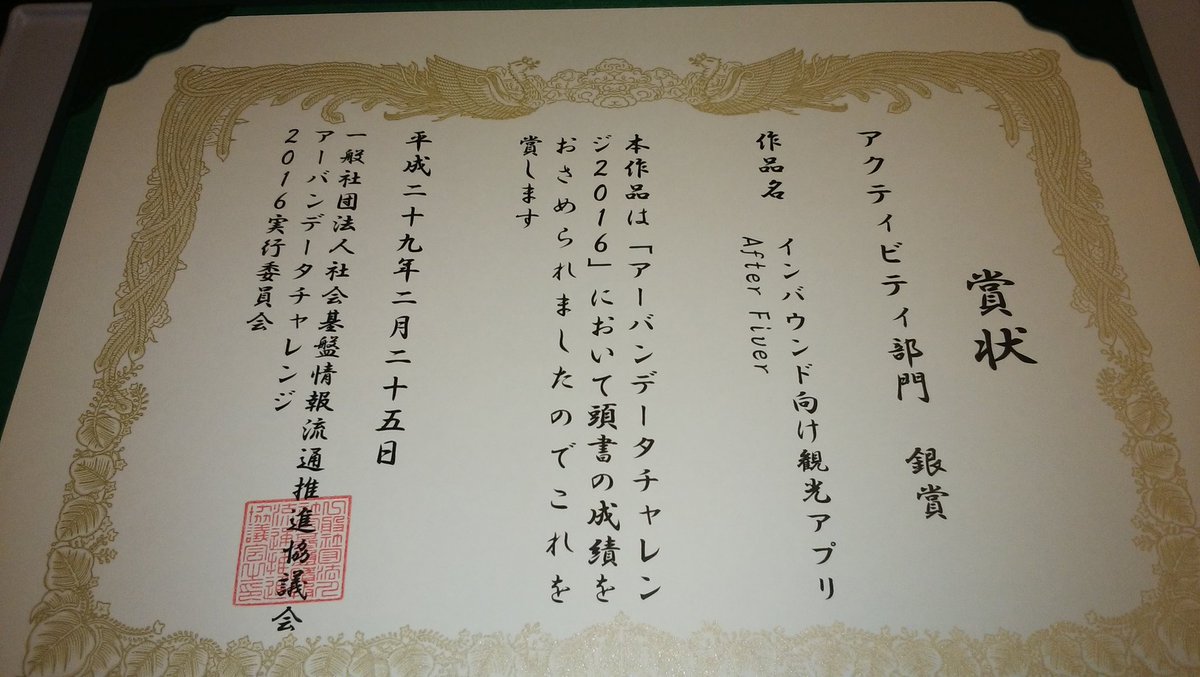 賞状
アクティビティ部門 銀賞
作品名 インバウンド向け観光アプリ
After Fiver
本作品は「アーバンデータチャレン
ジ2016」において頭書の成績を
おさめられましたのでこれを
賞します
平成二十九年二月二十五日
一般社団法人社会基盤情報流通推進協議会
アーバンデータチャレンジ
2016実行委員会